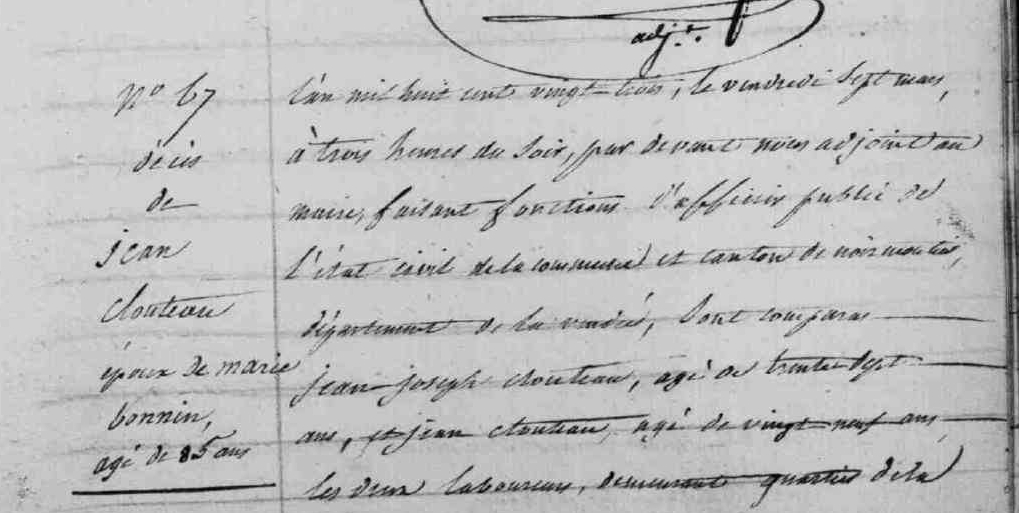 adj.t
N.o 67
décès
de
jean
clouteau
époux de marie
bonnin,
agé de 85 ans
l'an mil huit cent vingt-trois, le vendredi sept mars,
à trois heures du soir, par devant nous adjoint au
maire, faisant fonctions d'officier public de
l'état civil de la commune et canton de noirmoutier,
département de la vendée, sont comparus
jean joseph clouteau, agé de trente sept
ans, et jean clouteau, agé de vingt neuf ans
les deux laboureurs, demeurant quartier de la